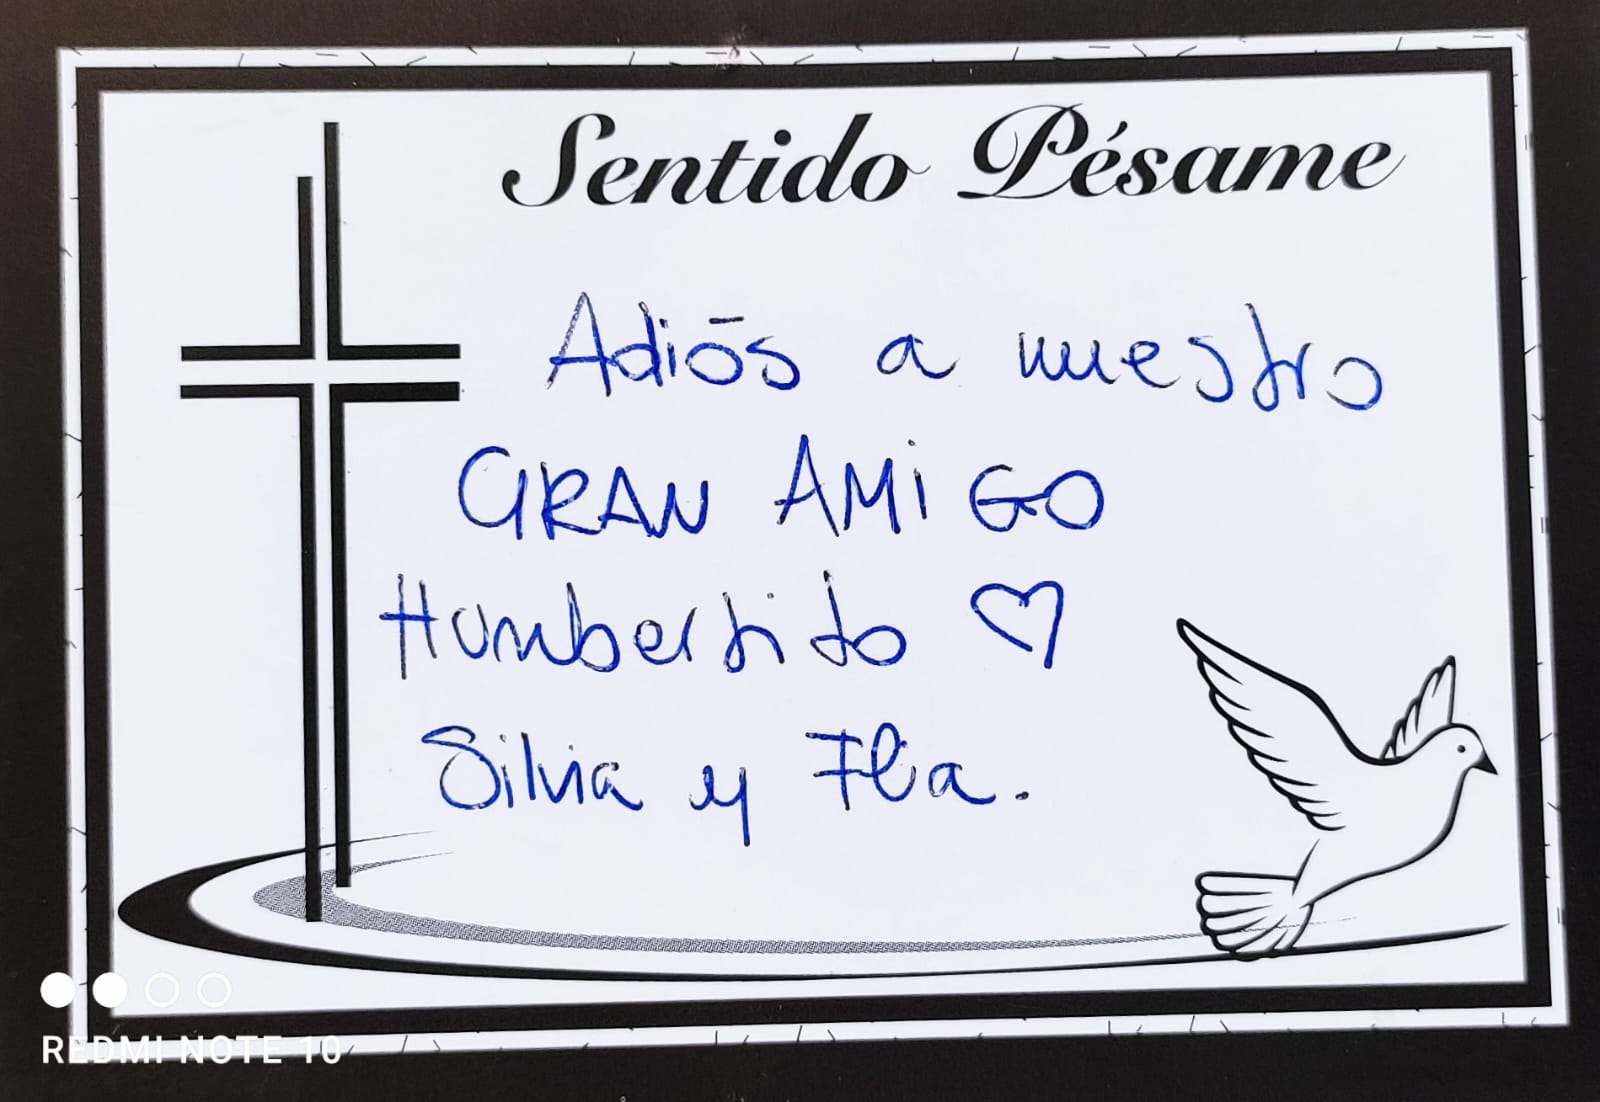 Sentido Pésame
Adiós a nuestro
GRAN AMiGO
Humbertito ♡
Silvia y Flia.
REDMI NOTE 10